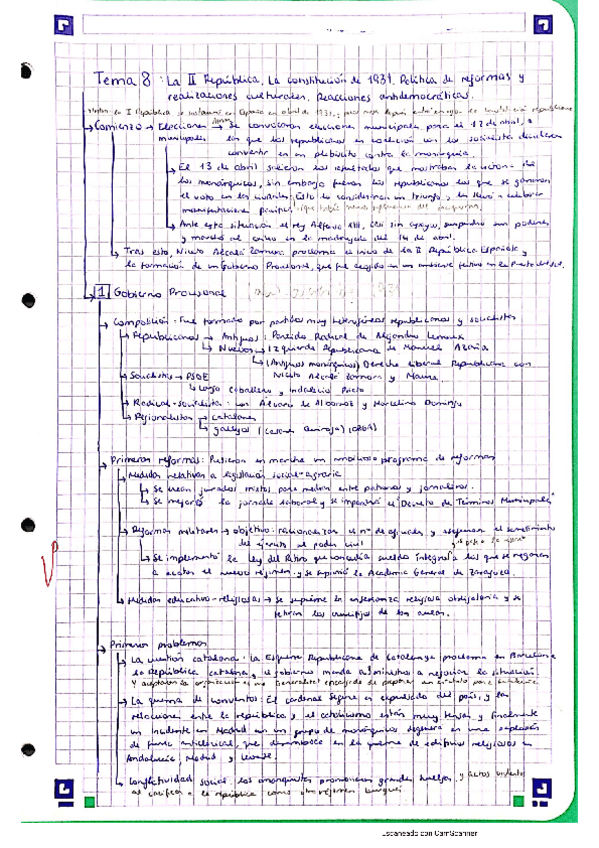 Tema 8: La II República. La constitución de 1931. Política de reformas y
realizaciones culturales. Reacciones antidemocráticas.
la I República se instauró en España en abril de 1931,
Comienzo → Elecciones → Se convocaron elecciones municipales para el 12 de abril, a
municipales en las que los republicanos en coalición con los socialistas decidieron
convertir en un plebiscito contra la monarquía.
El 13 de abril salieron los resultados que mostraban la victoria de
los monárquicos, sin embargo fueron los republicanos los que se ganaron
el voto en las ciudades. Esto lo consideraron un triunfo y
manifestaciones
Ante esta situación el rey Alfonso XIII, sin apoyos, suspendió sus poderes
y marchó al exilio en la madrugada del 14 de abril.
Tras esto, Niceto Alcalá Zamora proclama el inicio de la II República Española y
la formación de un Gobierno Provisional, que fue acogido en un ambiente festivo en la Puerta del Sol.
1 Gobierno Provisional
Composición: Fue formado por partidos muy heterogéneos republicanos y socialistas
Republicanos → Antiguos: Partido Radical de Alejandro Lerroux
Nuevos → Izquierda Republicana de Manuel Azaña
(Antiguos monárquicos) Derecha Liberal Republicana con
Niceto Alcalá Zamora y Maura.
Socialistas → PSOE
Largo Caballero y Indalecio Prieto
Radical-socialista: con Álvaro de Albornoz y Marcelino Domingo
Regionalistas → catalanes
gallegos (Casares Quiroga) (ORGA)
Primeras reformas: Pusieron en marcha un amplio programa de reformas
Medidas relativas a legislación social-agraria
Se crean jurados mixtos para mediar entre patronos y jornaleros.
Se mejoró la jornada laboral y se impondrá el "Decreto de Términos Municipales"
Reformas militares → objetivo: racionalizar el nº de oficiales y
del ejército al poder civil
Se implementó la Ley del Retiro que concedía sueldo integral a los que se negaran
a acatar el nuevo régimen y se suprimió la Academia General de Zaragoza.
Medidas educativo-religiosas → se suprime la enseñanza religiosa obligatoria y se
retiran los crucifijos de las aulas.
Primeros problemas
La cuestión catalana: La Esquerra Republicana de Catalunya proclama en Barcelona
la República catalana y el gobierno manda a 3 ministros a negociar la situación.
Y aceptaron la organización de una Generalitat encargada de preparar un estatuto para
La quema de conventos: El cardenal Segura es expulsado del país, y las
relaciones entre la república y el catolicismo están muy tensas y finalmente
un incidente en Madrid con un grupo de monárquicos degenera en una explosión
de furia anticlerical, que desemboca en la quema de edificios religiosos en
Andalucía, Madrid y Levante.
Conflictividad social: Los anarquistas promovieron grandes huelgas y actos violentos
al calificar a la república como otro régimen burgués
Escaneado con CamScanner